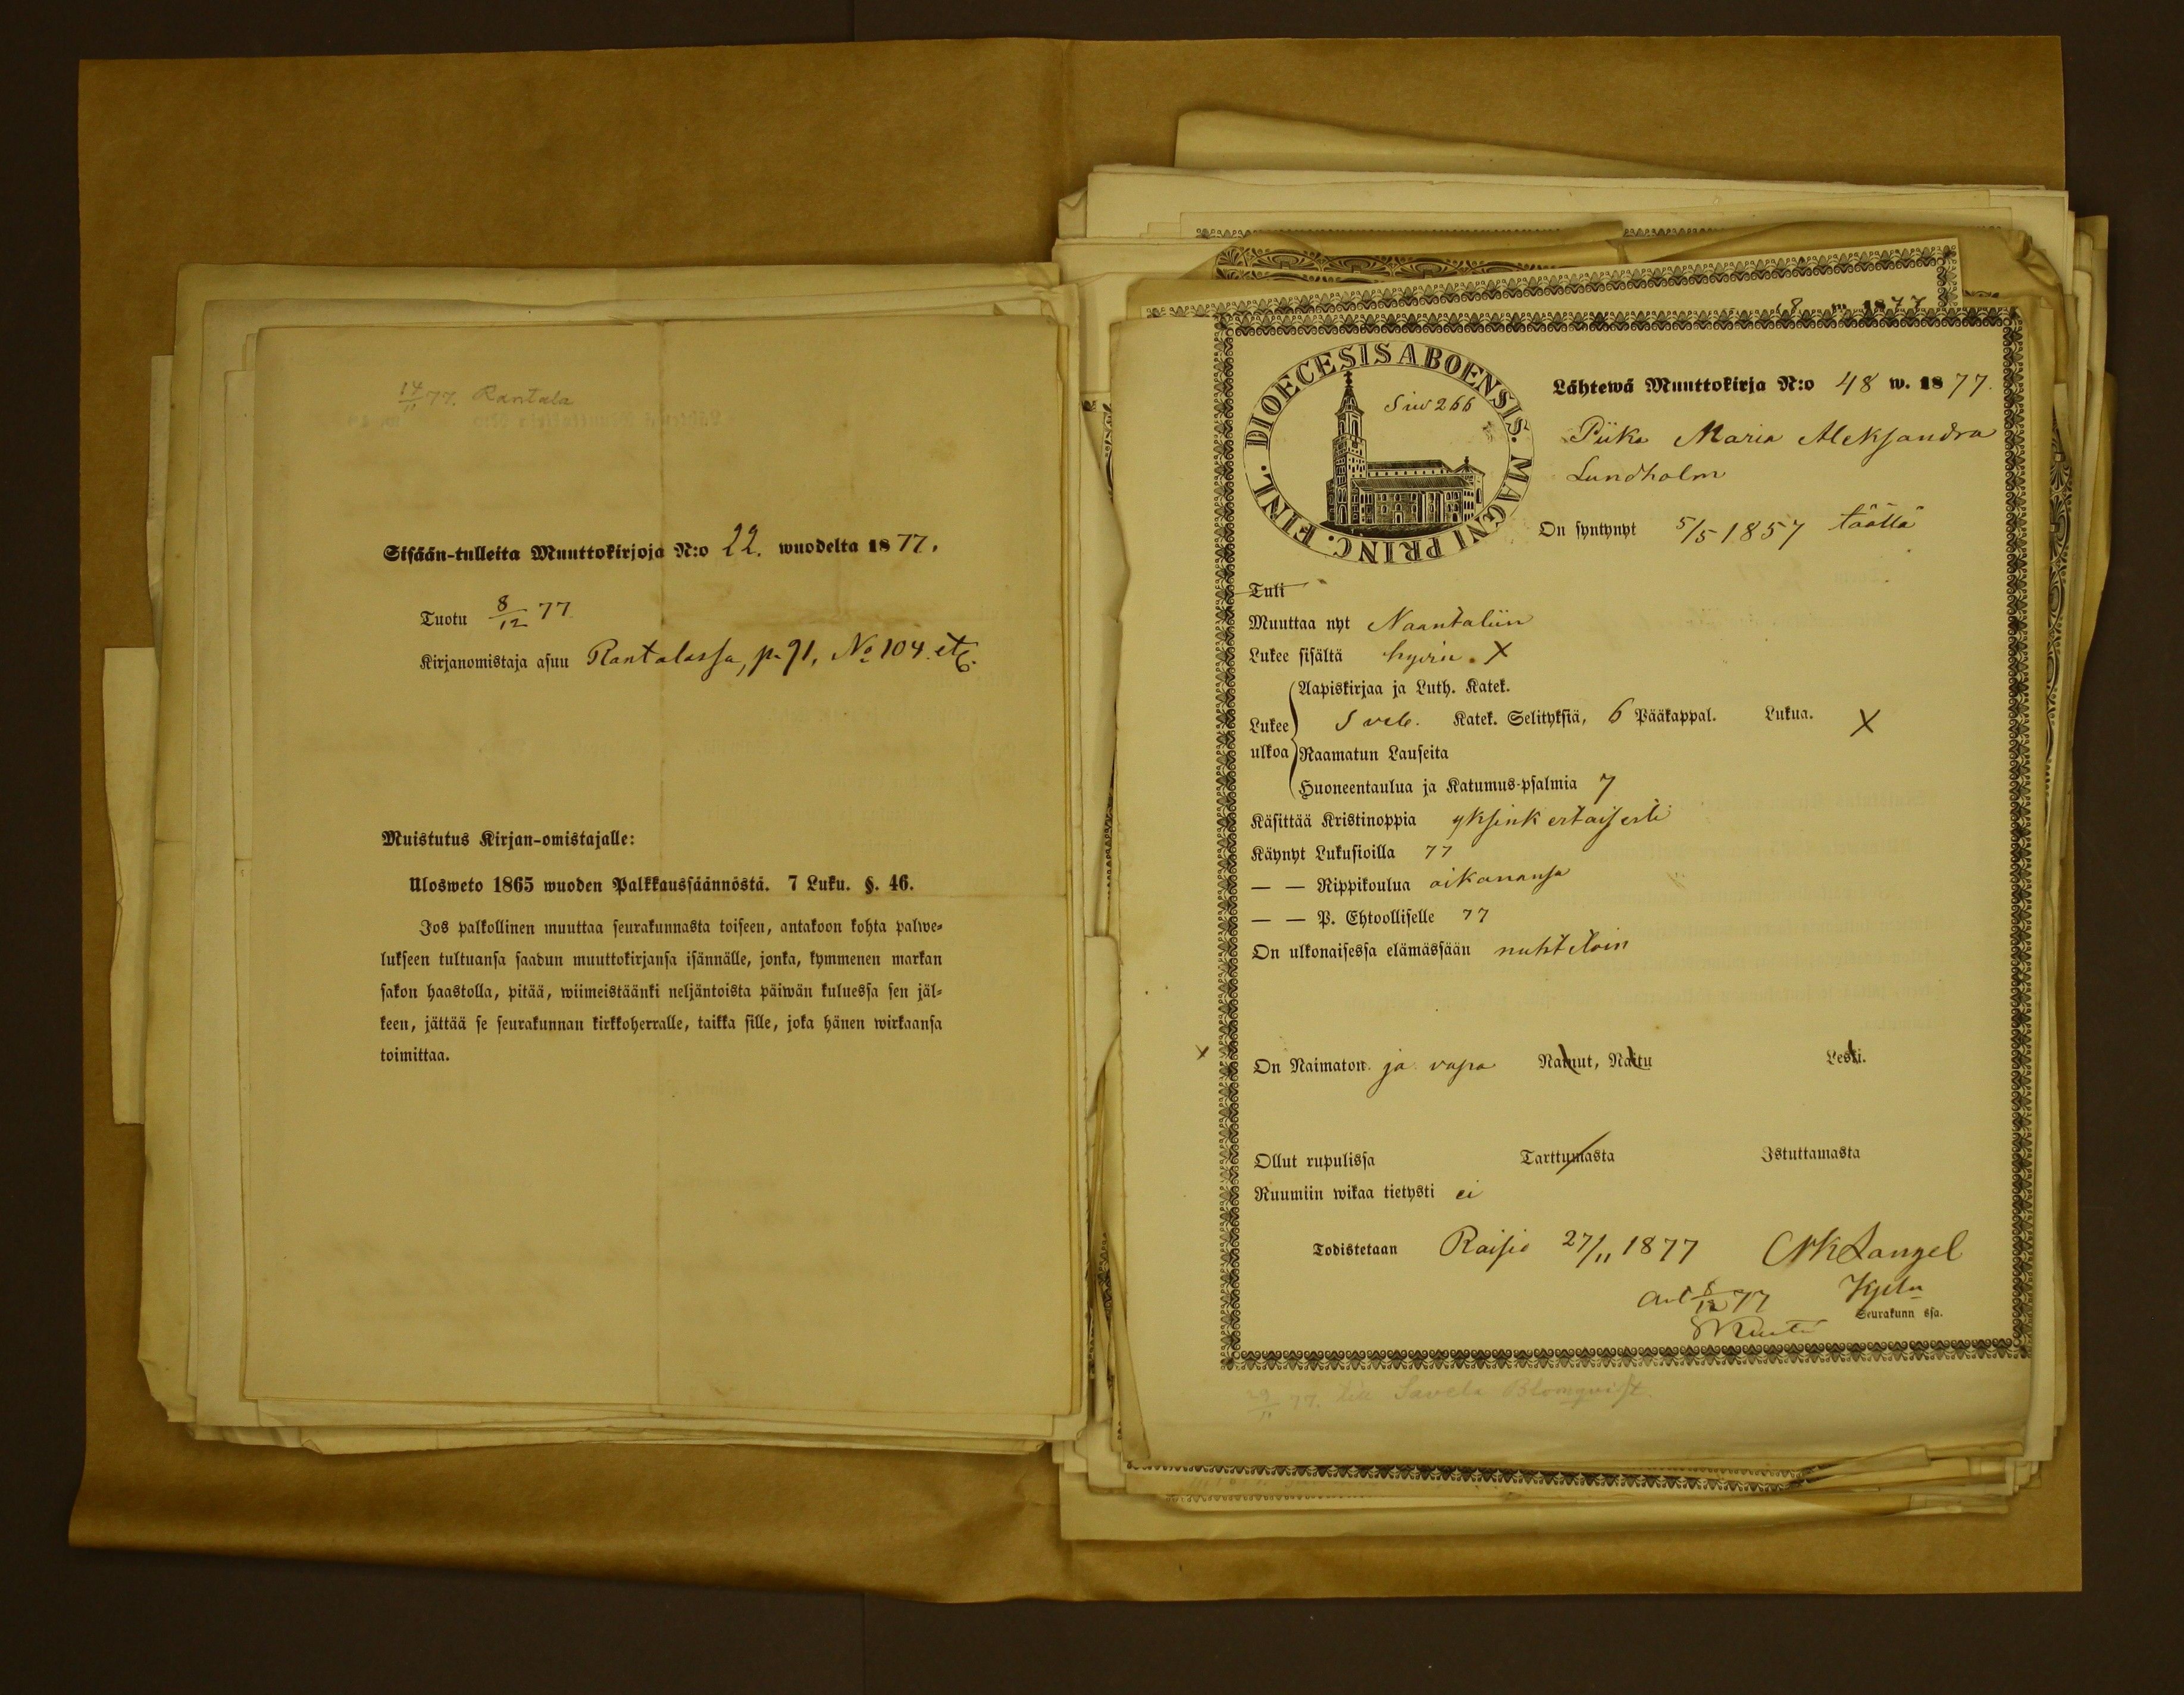 14/11 77. Rantala
Sisään-tulleita Muuttokirjoja N:o 22. wuodelta 1877.
Tuotu 8/12 77
Kirjanomistaja asuu Rantalassa, p. 91, No 104. etc.
Muistutus Kirjan-omistajalle:
Ulosweto 1865 wuoden Palkkaussäännöstä. 7 Luku. §. 46.
Jos palkollinen muuttaa seurakunnasta toiseen, antakoon kohta palwe-
lukseen tultuansa saadun muuttokirjansa isännälle, jonka, kymmenen markan
sakon haastolla, pitää, wiimeistäänki neljäntoista päiwän kuluessa sen jäl-
keen, jättää se seurakunnan kirkkoherralle, taikka sille, joka hänen wirkaansa
toimittaa.
8 w. 1877
DIOECESIS ABOENSIS. MAGNI PRINC. FINL.
Siw 266
Lähtewä Muuttokirja N:o 48 w. 1877.
Piika Maria Aleksandra
Lundholm
On syntynyt 5/5 1857 täällä
Tuli
Muuttaa nyt Naantaliin
Lukee sisältä hywin. X
Aapiskirjaa ja Luth. Katek.
Lukee Sveb. Katek. Selityksiä, 6 Pääkappal. Lukua. X
ulkoa Raamatun Lauseita
Huoneentaulua ja Katumus-psalmia 7
Käsittää Kristinoppia yksinkertaisesti
Käynyt Lukusioilla 77
— — Rippikoulua aikanansa
— — P. Ehtoolliselle 77
On ulkonaisessa elämässään nuhteton
x On Naimaton ja vapa Nainut, Naitu Leski.
Ollut rupulissa Tarttumasta Istuttamasta
Ruumiin wikaa tietysti ei
Todistetaan Raisio 27/11 1877 Langel
8/12 77
Seurakunn ssa.
29/11 77. Savela Blomqvist.